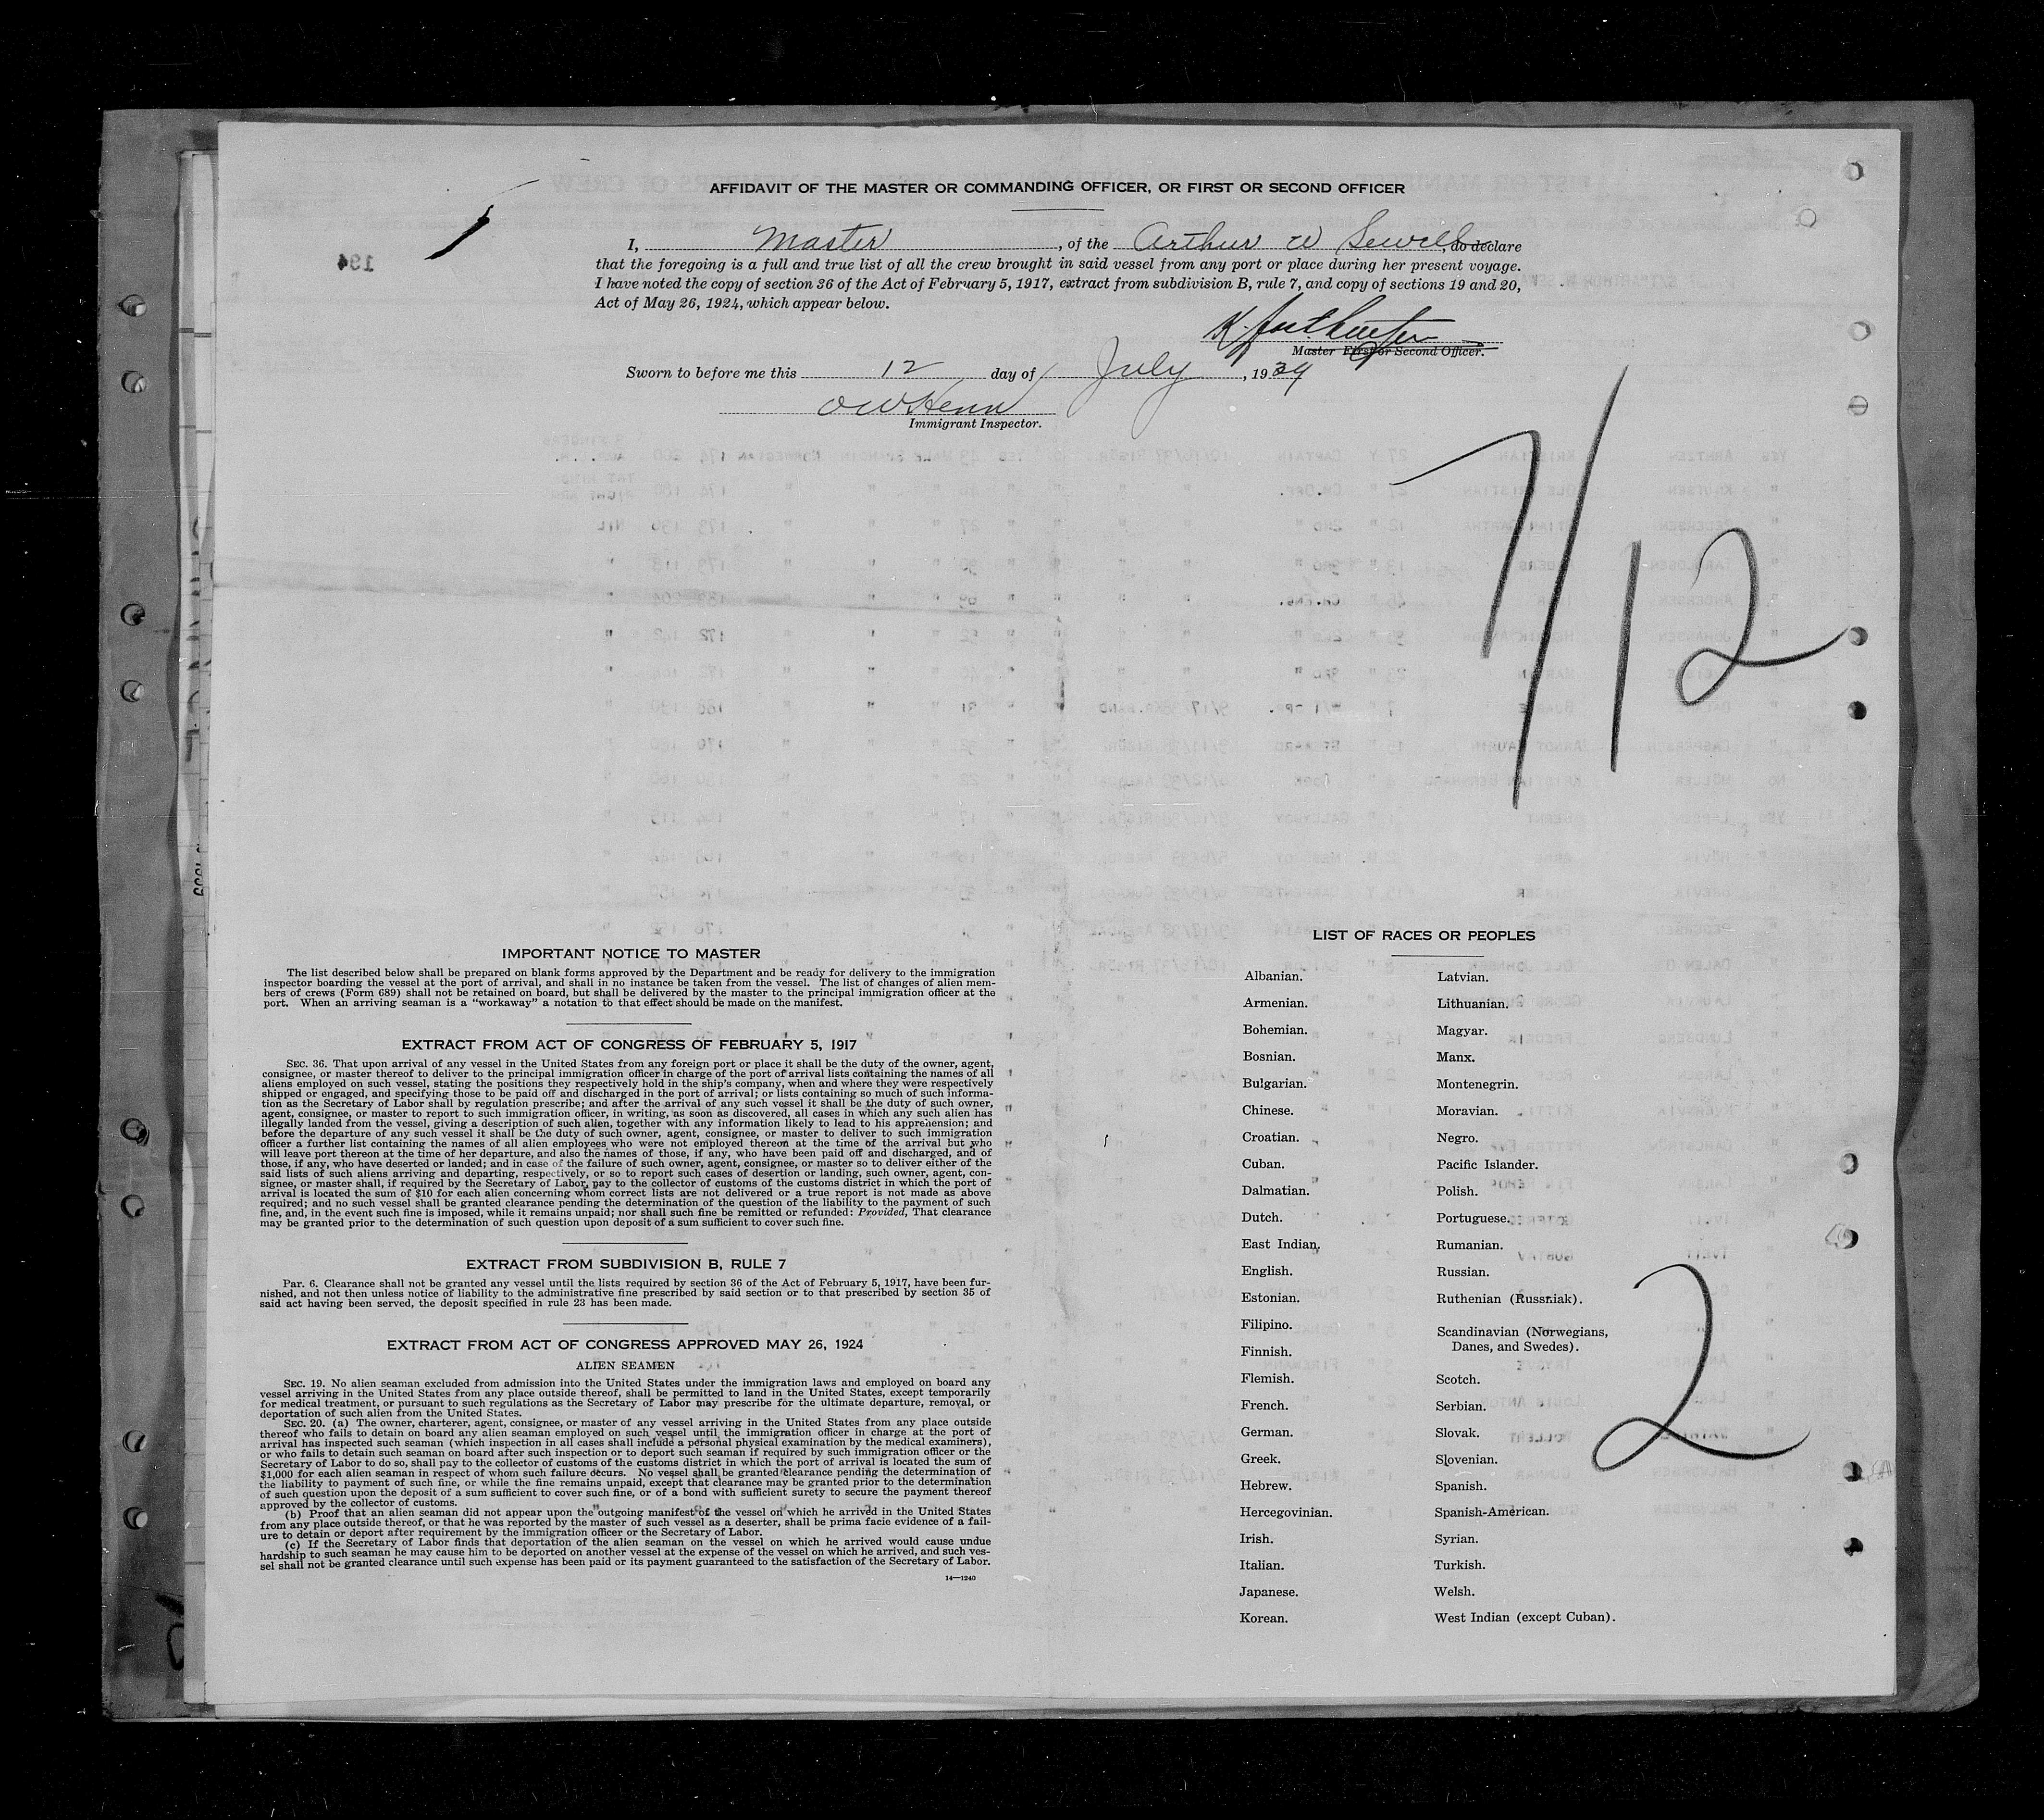 AFFIDAVIT OF THE MASTER OR COMMANDING OFFICER, OR FIRST OR SECOND OFFICER
I, Master, of the Arthur W Sewell, do declare
that the foregoing is a full and true list of all the crew brought in said vessel from any port or place during her present voyage.
I have noted the copy of section 36 of the Act of February 5, 1917, extract from subdivision B, rule 7, and copy of sections 19 and 20,
Act of May 26, 1924, which appear below.
Master First or Second Officer.
Sworn to before me this 12 day of July, 1939
OW Henn
Immigrant Inspector.
194
7/12
IMPORTANT NOTICE TO MASTER
The list described below shall be prepared on blank forms approved by the Department and be ready for delivery to the immigration
inspector boarding the vessel at the port of arrival, and shall in no instance be taken from the vessel. The list of changes of alien mem-
bers of crews (Form 689) shall not be retained on board, but shall be delivered by the master to the principal immigration officer at the
port. When an arriving seaman is a "workaway" a notation to that effect should be made on the manifest.
EXTRACT FROM ACT OF CONGRESS OF FEBRUARY 5, 1917
SEC. 36. That upon arrival of any vessel in the United States from any foreign port or place it shall be the duty of the owner, agent,
consignee, or master thereof to deliver to the principal immigration officer in charge of the port of arrival lists containing the names of all
aliens employed on such vessel, stating the positions they respectively hold in the ship's company, when and where they were respectively
shipped or engaged, and specifying those to be paid off and discharged in the port of arrival; or lists containing so much of such informa-
tion as the Secretary of Labor shall by regulation prescribe; and after the arrival of any such vessel it shall be the duty of such owner,
agent, consignee, or master to report to such immigration officer, in writing, as soon as discovered, all cases in which any such alien has
illegally landed from the vessel, giving a description of such alien, together with any information likely to lead to his apprehension; and
before the departure of any such vessel it shall be the duty of such owner, agent, consignee, or master to deliver to such immigration
officer a further list containing the names of all alien employees who were not employed thereon at the time of the arrival but who
will leave port thereon at the time of her departure, and also the names of those, if any, who have been paid off and discharged, and of
those, if any, who have deserted or landed; and in case of the failure of such owner, agent, consignee, or master so to deliver either of the
said lists of such aliens arriving and departing, respectively, or so to report such cases of desertion or landing, such owner, agent, con-
signee, or master shall, if required by the Secretary of Labor, pay to the collector of customs of the customs district in which the port of
arrival is located the sum of $10 for each alien concerning whom correct lists are not delivered or a true report is not made as above
required; and no such vessel shall be granted clearance pending the determination of the question of the liability to the payment of such
fine, and, in the event such fine is imposed, while it remains unpaid; nor shall such fine be remitted or refunded: Provided, That clearance
may be granted prior to the determination of such question upon deposit of a sum sufficient to cover such fine.
EXTRACT FROM SUBDIVISION B, RULE 7
Par. 6. Clearance shall not be granted any vessel until the lists required by section 36 of the Act of February 5, 1917, have been fur-
nished, and not then unless notice of liability to the administrative fine prescribed by said section or to that prescribed by section 35 of
said act having been served, the deposit specified in rule 23 has been made.
EXTRACT FROM ACT OF CONGRESS APPROVED MAY 26, 1924
ALIEN SEAMEN
SEC. 19. No alien seaman excluded from admission into the United States under the immigration laws and employed on board any
vessel arriving in the United States from any place outside thereof, shall be permitted to land in the United States, except temporarily
for medical treatment, or pursuant to such regulations as the Secretary of Labor may prescribe for the ultimate departure, removal, or
deportation of such alien from the United States.
SEC. 20. (a) The owner, charterer, agent, consignee, or master of any vessel arriving in the United States from any place outside
thereof who fails to detain on board any alien seaman employed on such vessel until the immigration officer in charge at the port of
arrival has inspected such seaman (which inspection in all cases shall include a personal physical examination by the medical examiners),
or who fails to detain such seaman on board after such inspection or to deport such seaman if required by such immigration officer or the
Secretary of Labor to do so, shall pay to the collector of customs of the customs district in which the port of arrival is located the sum of
$1,000 for each alien seaman in respect of whom such failure occurs. No vessel shall be granted clearance pending the determination of
the liability to payment of such fine, or while the fine remains unpaid, except that clearance may be granted prior to the determination
of such question upon the deposit of a sum sufficient to cover such fine, or of a bond with sufficient surety to secure the payment thereof
approved by the collector of customs.
(b) Proof that an alien seaman did not appear upon the outgoing manifest of the vessel on which he arrived in the United States
from any place outside thereof, or that he was reported by the master of such vessel as a deserter, shall be prima facie evidence of a fail-
ure to detain or deport after requirement by the immigration officer or the Secretary of Labor.
(c) If the Secretary of Labor finds that deportation of the alien seaman on the vessel on which he arrived would cause undue
hardship to such seaman he may cause him to be deported on another vessel at the expense of the vessel on which he arrived, and such ves-
sel shall not be granted clearance until such expense has been paid or its payment guaranteed to the satisfaction of the Secretary of Labor.
14—1240
LIST OF RACES OR PEOPLES
Albanian.
Armenian.
Bohemian.
Bosnian.
Bulgarian.
Chinese.
Croatian.
Cuban.
Dalmatian.
Dutch.
East Indian.
English.
Estonian.
Filipino.
Finnish.
Flemish.
French.
German.
Greek.
Hebrew.
Hercegovinian.
Irish.
Italian.
Japanese.
Korean.
Latvian.
Lithuanian.
Magyar.
Manx.
Montenegrin.
Moravian.
Negro.
Pacific Islander.
Polish.
Portuguese.
Rumanian.
Russian.
Ruthenian (Russniak).
Scandinavian (Norwegians,
Danes, and Swedes).
Scotch.
Serbian.
Slovak.
Slovenian.
Spanish.
Spanish-American.
Syrian.
Turkish.
Welsh.
West Indian (except Cuban).
2